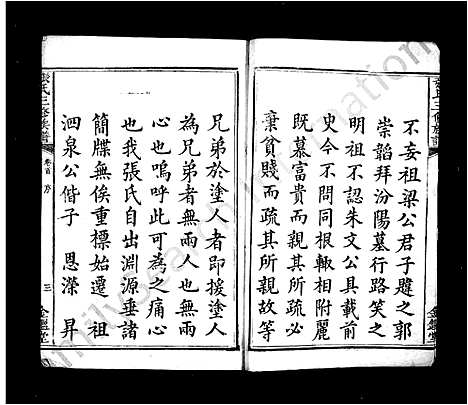 不妄祖梁公君子韙之郭
崇韜拜汾陽墓行路笑之
明祖不認朱文公具載前
史今不問同根輙相附麗
既慕富貴而親其所疏必
棄貧賤而疏其所親故等
兄弟於塗人者即援塗人
為兄弟者無兩人也無兩
心也嗚呼此可為之痛心
也我張氏自出淵源垂諸
簡牒無俟重標始遷祖
泗泉公偕子 恩濚 昇
張氏三修族譜
卷首 序
三
金鑑堂